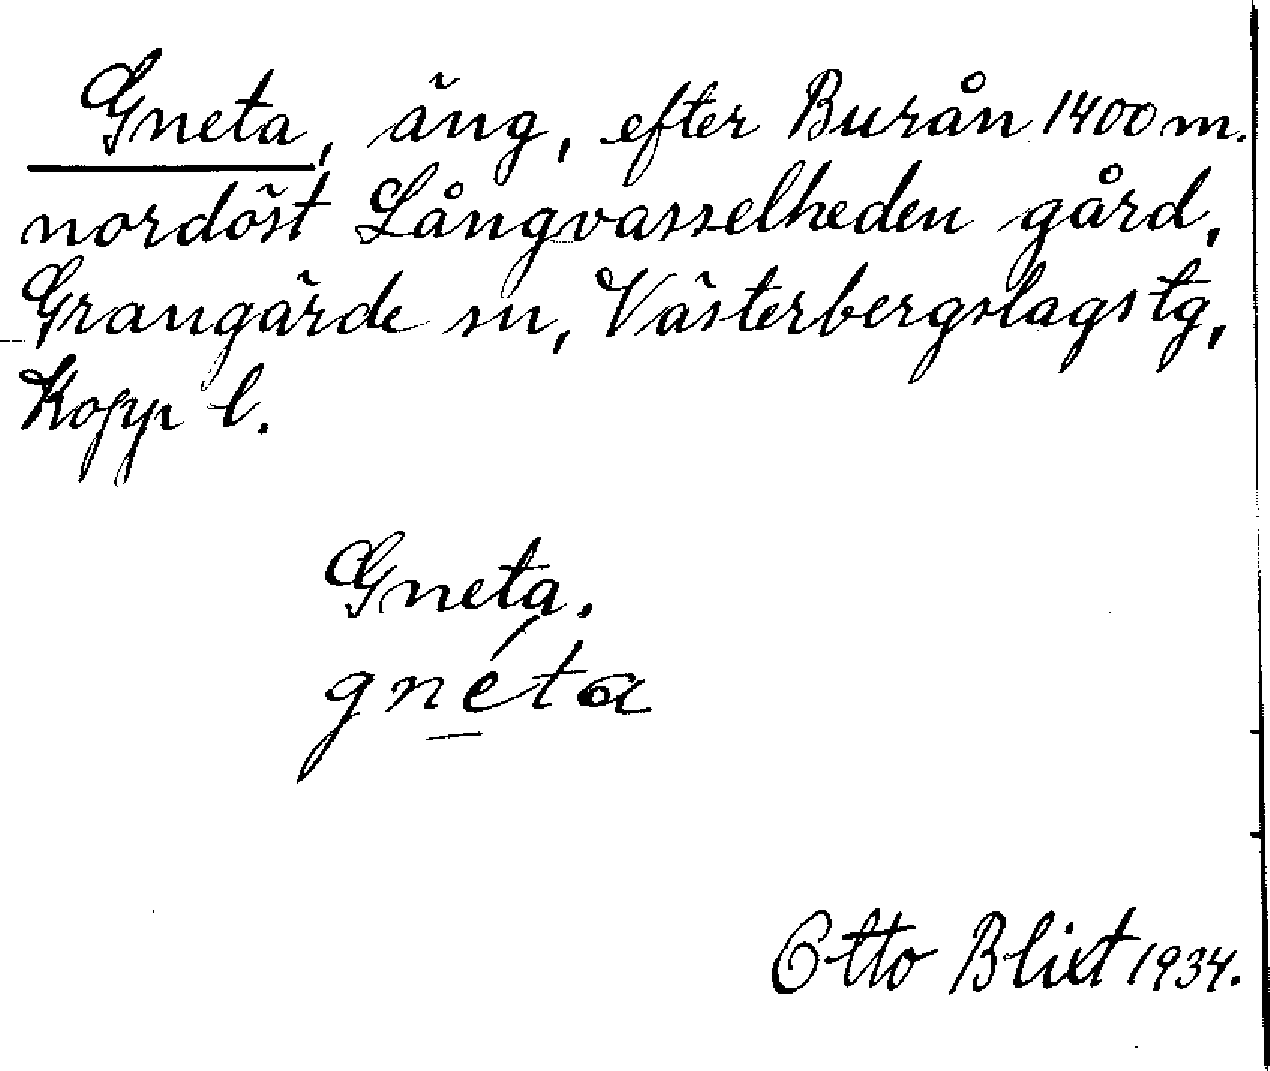 Gneta, äng, efter Burån 1400 m.
nordöst Långvasselheden gård,
Grangärde sn, Västerbergslags tg,
Kopp l.
Gneta.
gnéta
Otto Blixt 1934.